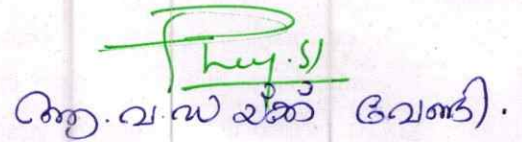 ആ.വ.ഡ യ്ക്ക് വേണ്ടി.